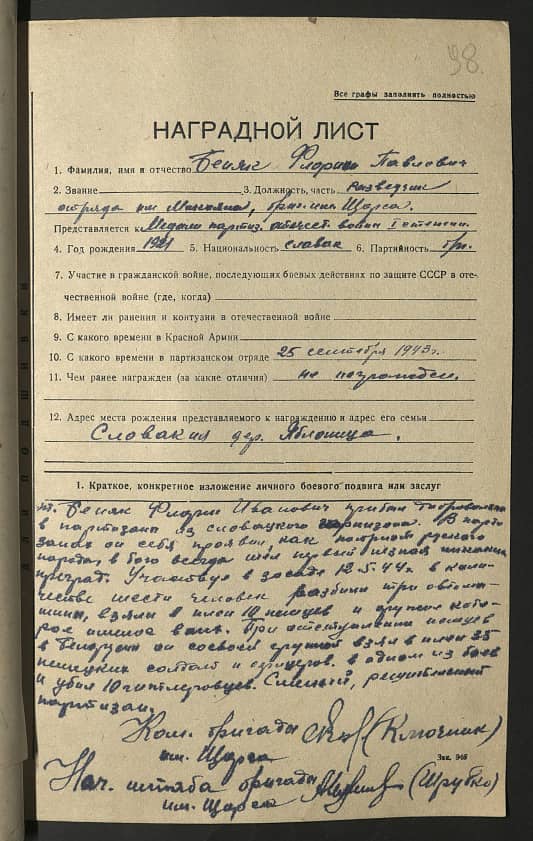 98.
Все графы заполнять полностью
НАГРАДНОЙ ЛИСТ
1. Фамилия, имя и отчество Беняк Флориш Павлович
2. Звание 3. Должность, часть Разведчик
отряда им Микояна, бригады Щорса.
Представляется к Медали партиз. отечест. войны I степени.
4. Год рождения 1921 5. Национальность словак 6. Партийность
7. Участие в гражданской войне, последующих боевых действиях по защите СССР в оте-
чественной войне (где, когда)
8. Имеет ли ранения и контузии в отечественной войне
9. С какого времени в Красной Армии
10. С какого времени в партизанском отряде 25 сентября 1943 г.
11. Чем ранее награжден (за какие отличия) не награжден.
12. Адрес места рождения представляемого к награждению и адрес его семьи
Словакия дер. Яблоница.
1. Краткое, конкретное изложение личного боевого подвига или заслуг
Беняк Флориш Иванович прибыл добровольно
в партизаны из словацкого гарнизона. В парти
занах он себя проявил, как патриот русского
народа, в бою всегда шел первый не зная никаких
преград. Участвуя в засаде 12.5.44 г. в коли-
честве шести человек разбили три автома-
шины, взяли в плен 10 немцев и оружие кото-
рое имелось. При отступлении немцев
в Белоруссии он со своей группой взял в плен 35
немецких солдат и офицеров. в одном из боев
и убил 10 гитлеровцев. Смелый, решительный
партизан.
Ком. бригады (Ключник)
им. Щорса
Зак. 946
Нач. штаба бригады (Шрубко)
им. Щорса